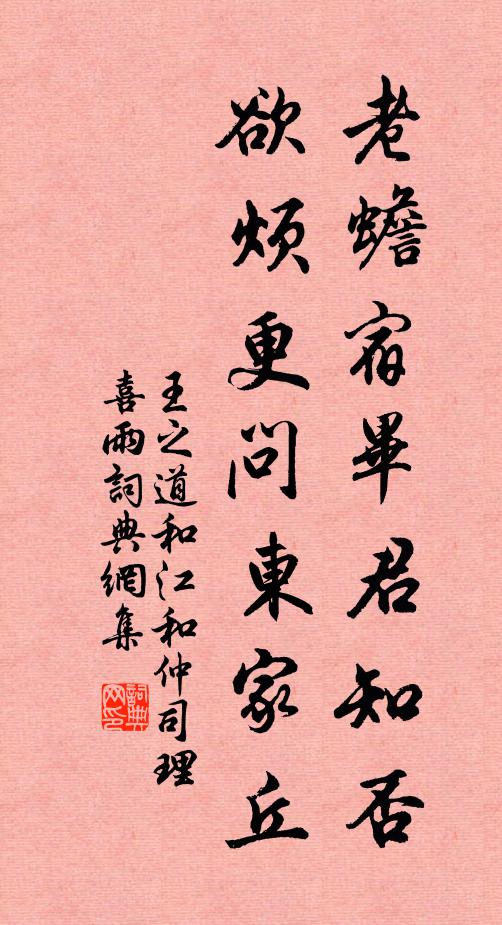 老蟾宿畢君知否
欲煩更問東家丘
王之道和江和仲司理
喜雨詞典網集
詞典网印